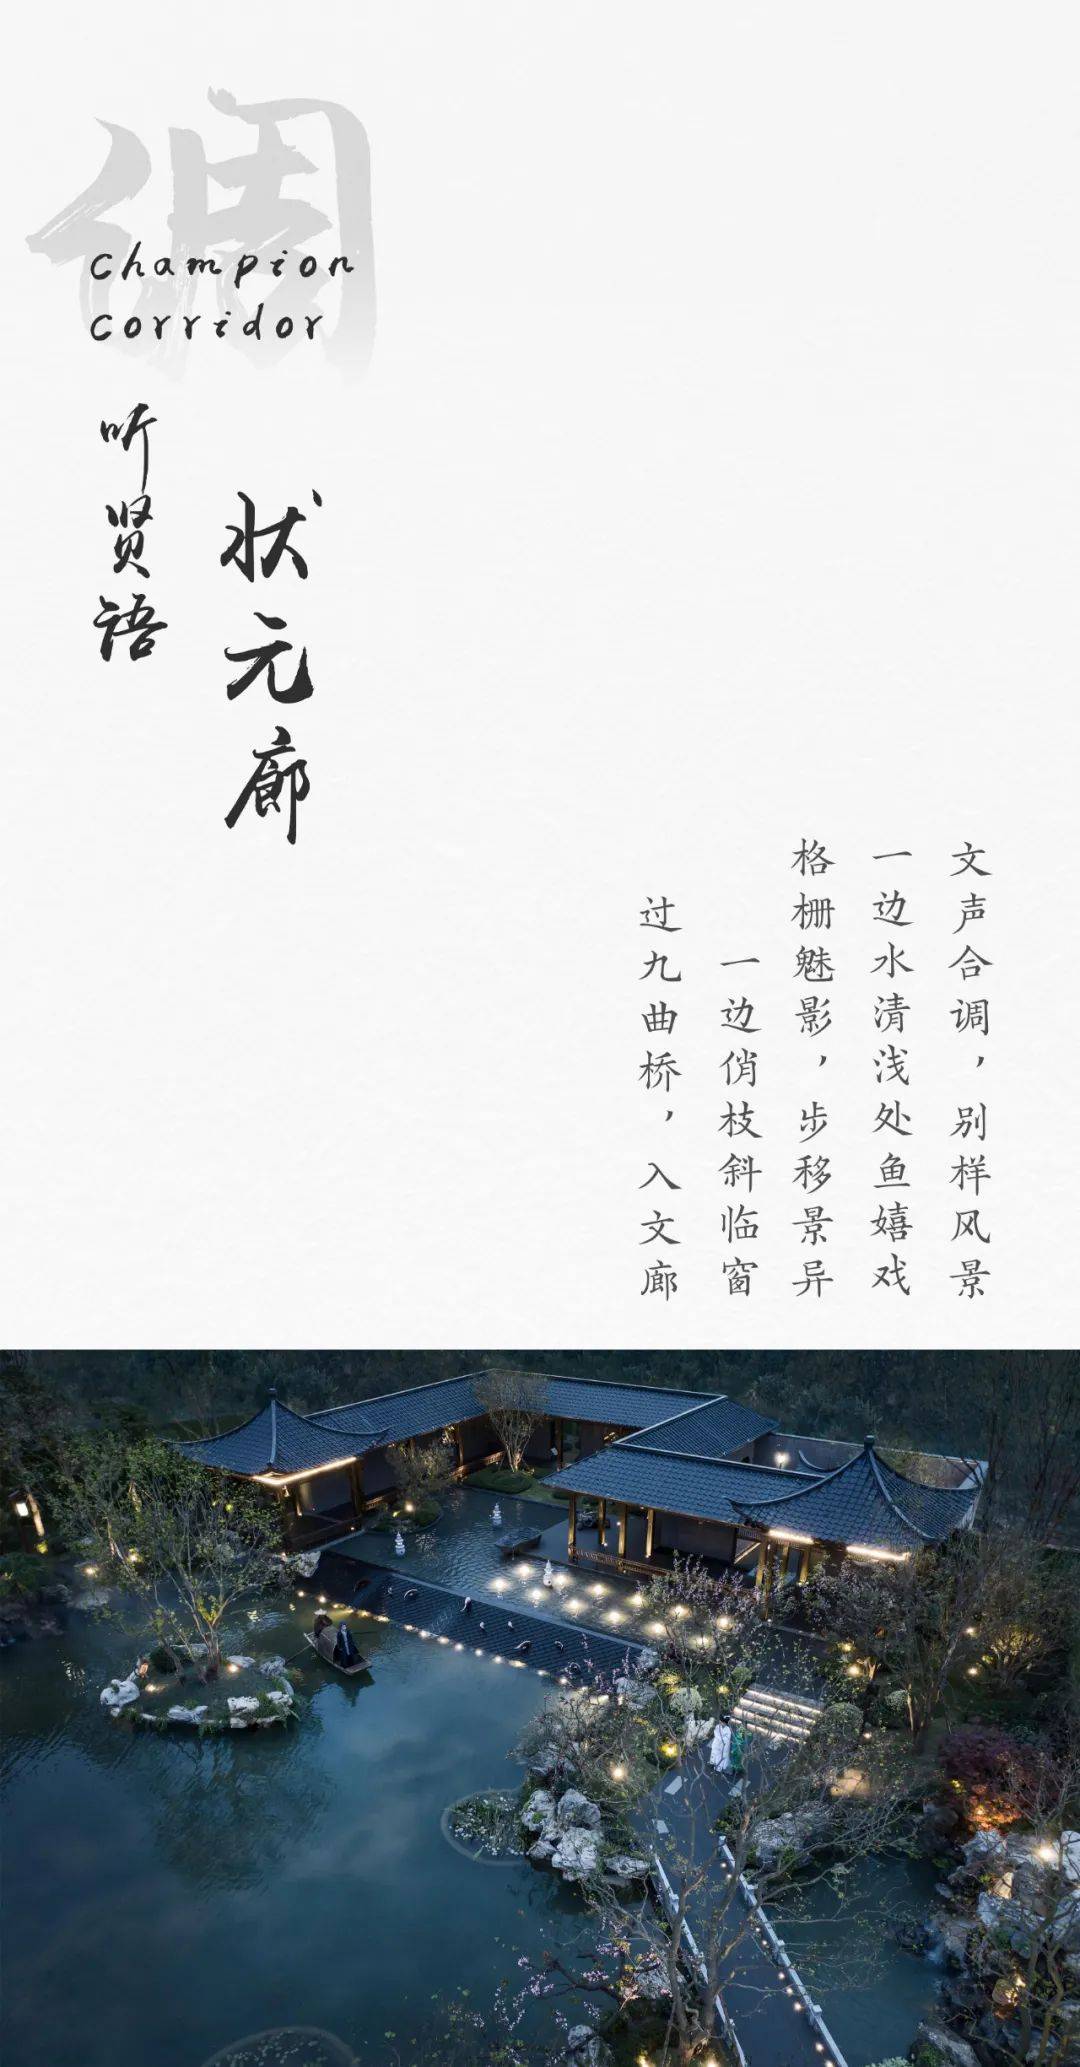 Champion
Corridor
听贤语
状元廊
过九曲桥，入文廊
一边俏枝斜临窗
格栅魅影，步移景异
一边水清浅处鱼嬉戏
文声合调，别样风景